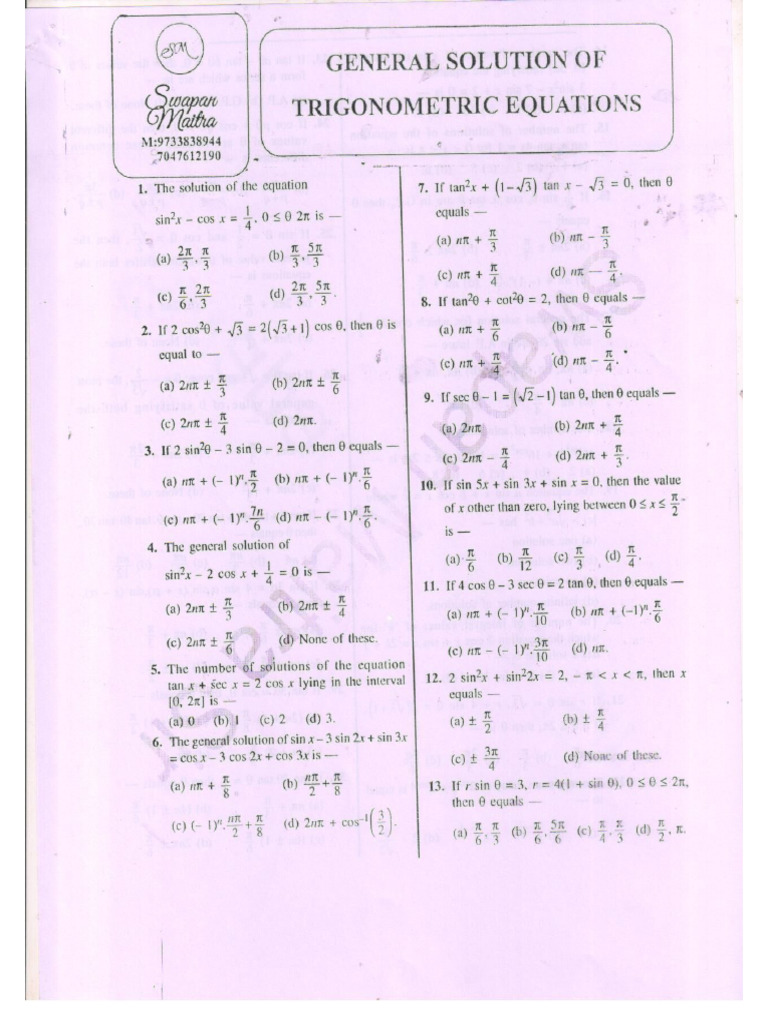 SM
Swapan
Maitra
M:9733838944
7047612190
GENERAL SOLUTION OF
TRIGONOMETRIC EQUATIONS
1. The solution of the equation
sin²x – cos x = 1/4, 0 ≤ θ 2π is —
(a) 2π/3, π/3 (b) π/3, 5π/3
(c) π/6, 2π/3 (d) 2π/3, 5π/3.
2. If 2 cos²θ + √3 = 2(√3+1) cos θ, then θ is
equal to —
(a) 2nπ ± π/3 (b) 2nπ ± π/6
(c) 2nπ ± π/4 (d) 2nπ.
3. If 2 sin²θ – 3 sin θ – 2 = 0, then θ equals —
(a) nπ + (– 1)ⁿ.π/2 (b) nπ + (– 1)ⁿ.π/6
(c) nπ + (– 1)ⁿ.7n/6 (d) nπ – (– 1)ⁿ.π/6.
4. The general solution of
sin²x – 2 cos x + 1/4 = 0 is —
(a) 2nπ ± π/3 (b) 2nπ ± π/4
(c) 2nπ ± π/6 (d) None of these.
5. The number of solutions of the equation
tan x + sec x = 2 cos x lying in the interval
[0, 2π] is —
(a) 0 (b) 1 (c) 2 (d) 3.
6. The general solution of sin x – 3 sin 2x + sin 3x
= cos x – 3 cos 2x + cos 3x is —
(a) nπ + π/8 (b) nπ/2 + π/8
(c) (– 1)ⁿ.nπ/2 + π/8 (d) 2nπ + cos⁻¹(3/2).
7. If tan²x + (1–√3) tan x – √3 = 0, then θ
equals —
(a) nπ + π/3 (b) nπ – π/3
(c) nπ + π/4 (d) nπ — π/4.
8. If tan²θ + cot²θ = 2, then θ equals —
(a) nπ + π/6 (b) nπ – π/6
(c) nπ + π/4 (d) nπ – π/4.
9. If sec θ – 1 = (√2 – 1) tan θ, then θ equals —
(a) 2nπ (b) 2nπ + π/4
(c) 2nπ – π/4 (d) 2nπ + π/3.
10. If sin 5x + sin 3x + sin x = 0, then the value
of x other than zero, lying between 0 ≤ x ≤ π/2
is —
(a) π/6 (b) π/12 (c) π/3 (d) π/4.
11. If 4 cos θ – 3 sec θ = 2 tan θ, then θ equals —
(a) nπ + (– 1)ⁿ.π/10 (b) nπ + (–1)ⁿ.π/6
(c) nπ – (– 1)ⁿ.3π/10 (d) nπ.
12. 2 sin²x + sin²2x = 2, – π < x < π, then x
equals —
(a) ± π/2 (b) ± π/4
(c) ± 3π/4 (d) None of these.
13. If r sin θ = 3, r = 4(1 + sin θ), 0 ≤ θ ≤ 2π,
then θ equals —
(a) π/6, π/3 (b) π/6, 5π/6 (c) π/4, π/3 (d) π/2, π.
Swapan Maitra Sir